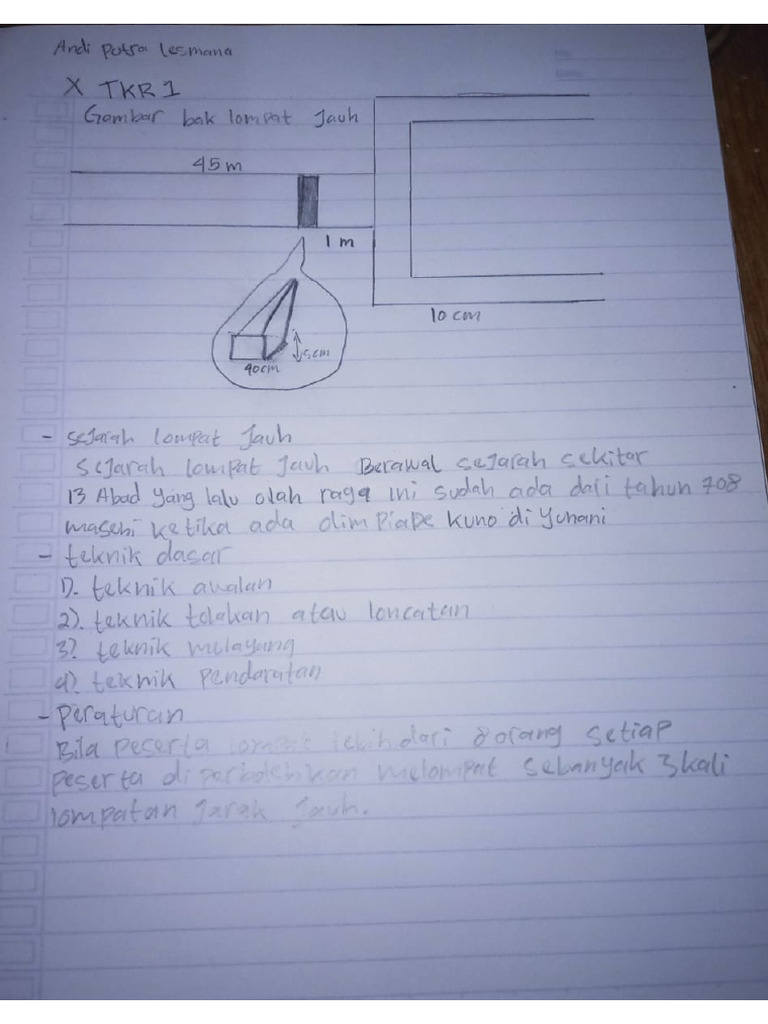 Andi Putra Lesmana
X TKR 1
Gambar bak lompat Jauh
45 m
1 m
10 cm
5cm
90cm
- sejarah lompat Jauh
Sejarah lompat Jauh Berawal sejarah sekitar
13 Abad yang lalu olah raga ini sudah ada dari tahun 708
masehi ketika ada olimpiade kuno di Yunani
- teknik dasar
1). teknik awalan
2). teknik tolakan atau loncatan
3). teknik melayang
4). teknik Pendaratan
- Peraturan
Bila Peserta lompat lebih dari 8 orang setiap
Peserta di perbolehkan melompat sebanyak 3 kali
lompatan Jarak Jauh.